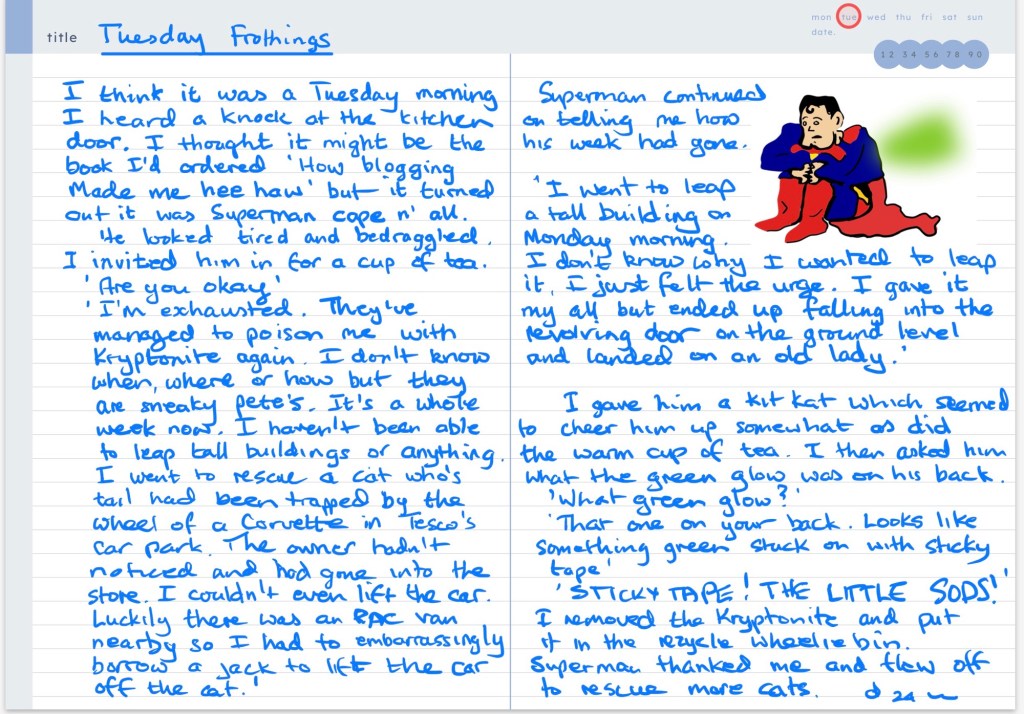 mon tue wed thu fri sat sun
title Tuesday Frothings
date.
1 2 3 4 5 6 7 8 9 0
I think it was a Tuesday morning
I heard a knock at the kitchen
door. I thought it might be the
book I'd ordered 'How blogging
Made me hee haw' but it turned
out it was Superman cape n' all.
He looked tired and bedraggled.
I invited him in for a cup of tea.
'Are you okay'
'I'm exhausted. They've
managed to poison me with
Kryptonite again. I don't know
when, where or how but they
are sneaky Pete's. It's a whole
week now. I haven't been able
to leap tall buildings or anything.
I went to rescue a cat who's
tail had been trapped by the
wheel of a Corvette in Tesco's
car park. The owner hadn't
noticed and had gone into the
store. I couldn't even lift the car.
Luckily there was an RAC van
nearby so I had to embarrassingly
borrow a jack to lift the car
off the cat.'
Superman continued
on telling me how
his week had gone.
'I went to leap
a tall building on
Monday morning.
I don't know why I wanted to leap
it, I just felt the urge. I gave it
my all but ended up falling into the
revolving door on the ground level
and landed on an old lady.'
I gave him a kit kat which seemed
to cheer him up somewhat as did
the warm cup of tea. I then asked him
what the green glow was on his back.
'What green glow?'
'That one on your back. Looks like
something green stuck on with sticky
tape'
'STICKY TAPE! THE LITTLE SODS!'
I removed the Kryptonite and put
it in the recycle wheelie bin.
Superman thanked me and flew off
to rescue more cats.
24